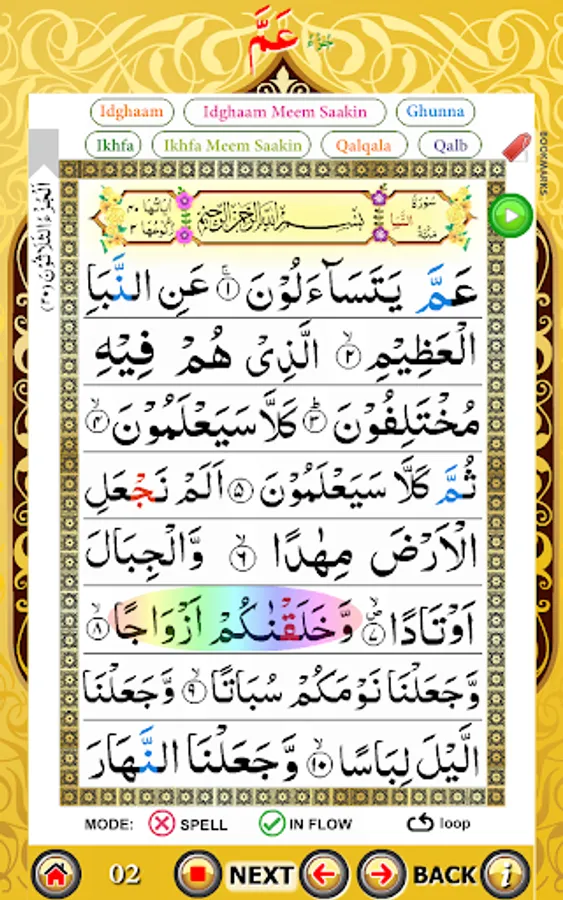 جُزْءُ عَمَّ
Idghaam Idghaam Meem Saakin Ghunna
Ikhfa Ikhfa Meem Saakin Qalqala Qalb
BOOKMARKS
اَلْجُزْءُ الثَّلَاثُوْنَ (٣٠)
سُوْرَةُ النَّبَا مَكِّيَّةٌ
بِسْمِ اللهِ الرَّحْمٰنِ الرَّحِيْمِ
اٰيَاتُهَا ٤٠ رُكُوْعُهَا ٢
عَمَّ يَتَسَآءَلُوْنَ ۚ ١ عَنِ النَّبَاِ
الْعَظِيْمِ ۙ ٢ الَّذِيْ هُمْ فِيْهِ
مُخْتَلِفُوْنَ ؕ ٣ كَلَّا سَيَعْلَمُوْنَ ۙ ٤
ثُمَّ كَلَّا سَيَعْلَمُوْنَ ٥ اَلَمْ نَجْعَلِ
الْاَرْضَ مِهٰدًا ۙ ٦ وَّالْجِبَالَ
اَوْتَادًا ۪ۙ ٧ وَّخَلَقْنٰكُمْ اَزْوَاجًا ۙ ٨
وَّجَعَلْنَا نَوْمَكُمْ سُبَاتًا ۙ ٩ وَّجَعَلْنَا
الَّيْلَ لِبَاسًا ۙ ١٠ وَّجَعَلْنَا النَّهَارَ
MODE: SPELL IN FLOW loop
02 NEXT BACK i